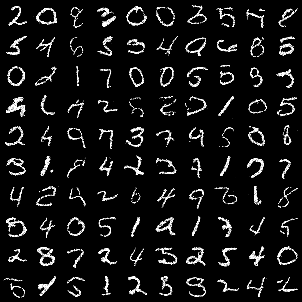 2 0 8 3 0 0 3 5 4 8
5 4 6 5 3 4 0 6 8 5
0 2 1 7 0 0 5 5 9 3
4 6 7 2 5 2 2 1 0 5
2 4 9 7 3 7 9 5 0 8
3 1 8 4 2 3 9 1 7 7
4 2 9 2 6 4 9 3 1 8
5 4 0 5 1 9 1 3 4 5
2 8 7 2 4 5 2 5 4 0
5 1 5 1 2 3 9 2 4 2